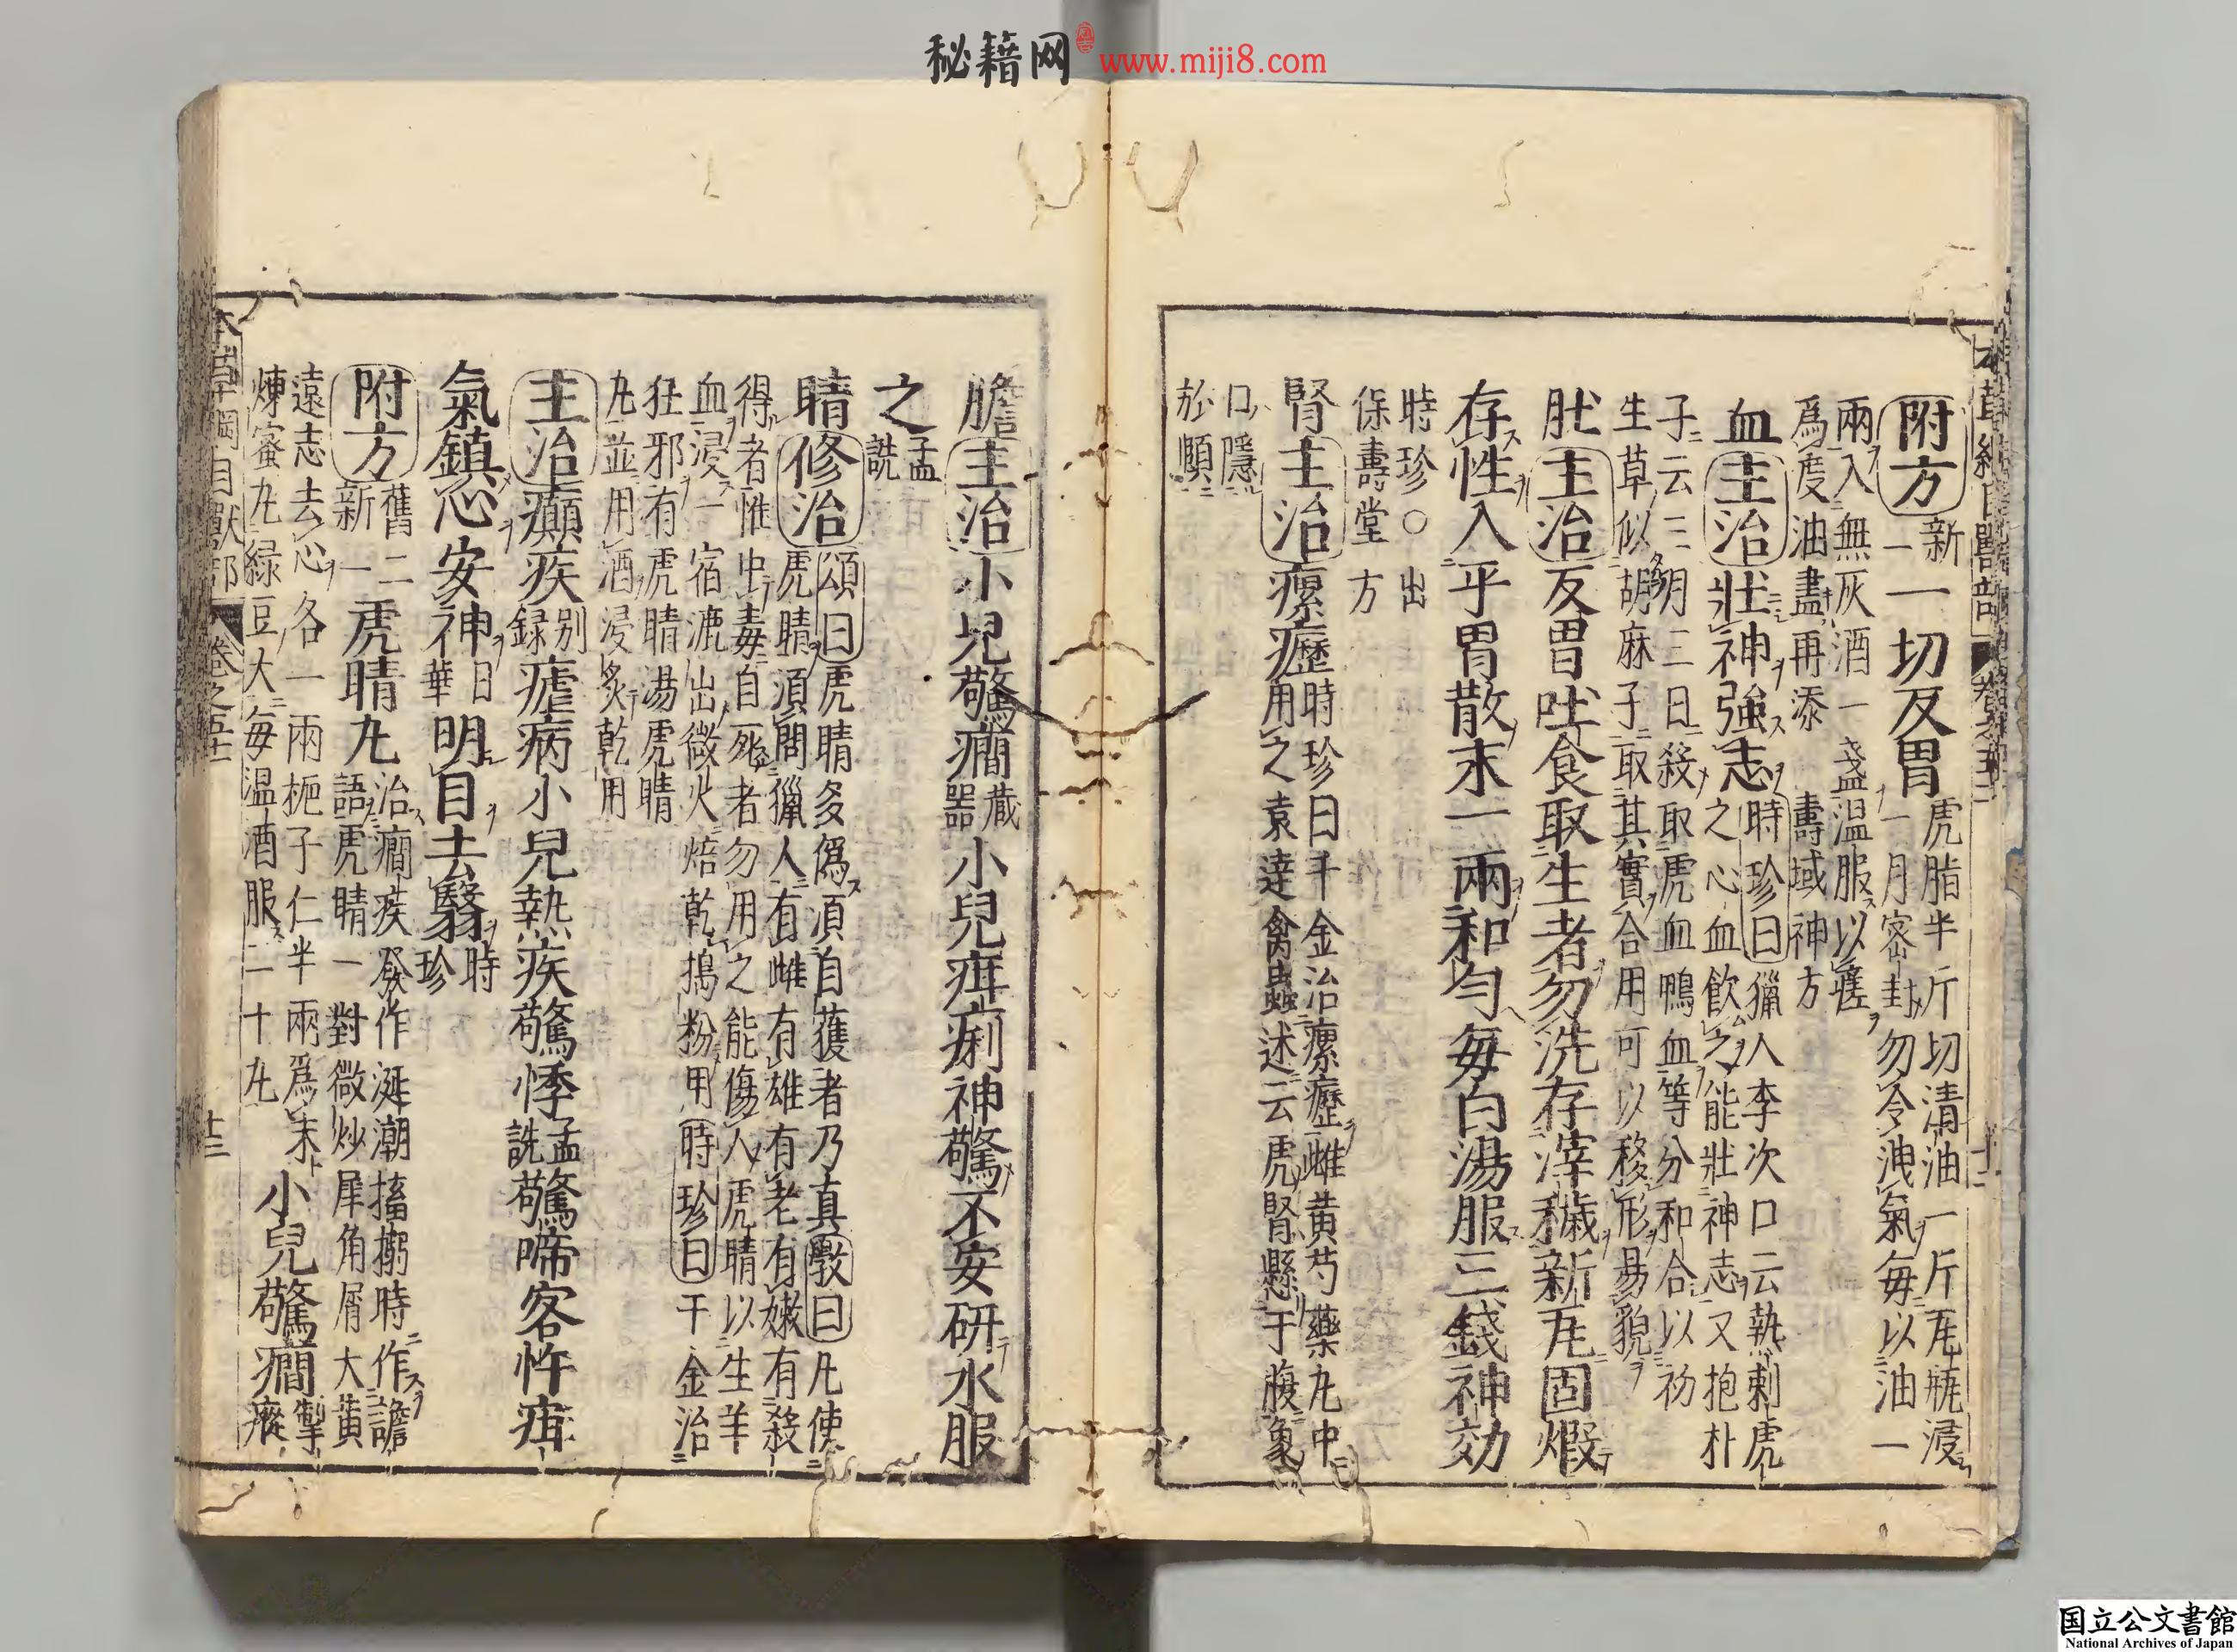 秘籍网 www.miji8.com
附方 新一 一切反胃 虎脂半斤切清油一斤瓦瓶浸
一月密封勿令洩氣每以油一
兩入無灰酒一盞温服以瘥
爲度油盡再添 壽域神方
血 主治 壯神強志 時珍曰 獵人李次口云熱刺虎
之心血飲之能壯神志又抱朴
子云三月三日殺取虎血鴨血等分和合以初
生草似胡麻子取其實合用可以移形易貌
肚 主治 反胃吐食取生者勿洗存滓穢新瓦固煅
存性入平胃散末一兩和勻每白湯服三錢神効
時珍○出
保壽堂方
腎 主治 瘰癧 時珍曰千金治瘰癧雌黄芍藥丸中
用之袁達禽蟲述云虎腎懸于腹象
口隱
於顋
膽 主治 小兒驚癇 藏器 小兒疳痢神驚不安研水服
之 孟詵
睛 修治 頌曰 虎睛多僞須自獲者乃真 斆曰 凡使
虎睛須問獵人有雌有雄有老有嫩有殺
得者惟中毒自死者勿用之能傷人虎睛以生羊
血浸一宿漉出微火焙乾搗粉用 時珍曰 千金治
狂邪有虎睛湯虎睛
丸並用酒浸炙乾用
主治 癲疾 别録 瘧病小兒熱疾驚悸 孟詵 驚啼客忤疳
氣鎮心安神 日華 明目去翳 時珍
附方 舊二新一 虎睛丸 治癇疾發作涎潮搐搦時作譫
語虎睛一對微炒犀角屑大黄
遠志去心各一兩梔子仁半兩爲末
煉蜜丸緑豆大每温酒服二十丸 小兒驚癇 掣瘲
本草綱目獸部 卷之五十一 十三
国立公文書館
National Archives of Japan